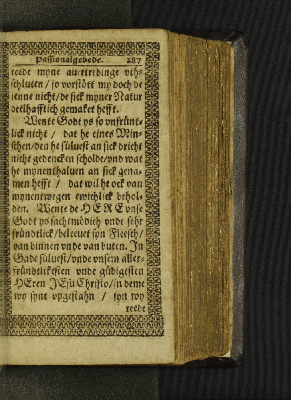 Passionalgebede. 287
rede myne
schluten / so vorstört my doch de
jenne nicht / de sick myner Natur
deelhafftich gemaket hefft.
Wente Godt ys so vnfrünt-
lick nicht / dat he eines Min-
schen / den he süluest an sick drecht
nicht gedencken scholde / vnd wat
he mynenthaluen an sick gena-
men hefft / dat wil he ock van
mynentwegen ewichlick behol-
den. Wente de HERE vnse
Godt ys sachtmödich vnde sehr
fründtlick / beleeuet syn Fleesch /
van binnen vnde van buten. In
Gade süluest / vnde vnsem aller-
fründtlikesten vnde güdigesten
HEren JEsu Christo / in deme
wy synt vpgestahn / synt wy
rede